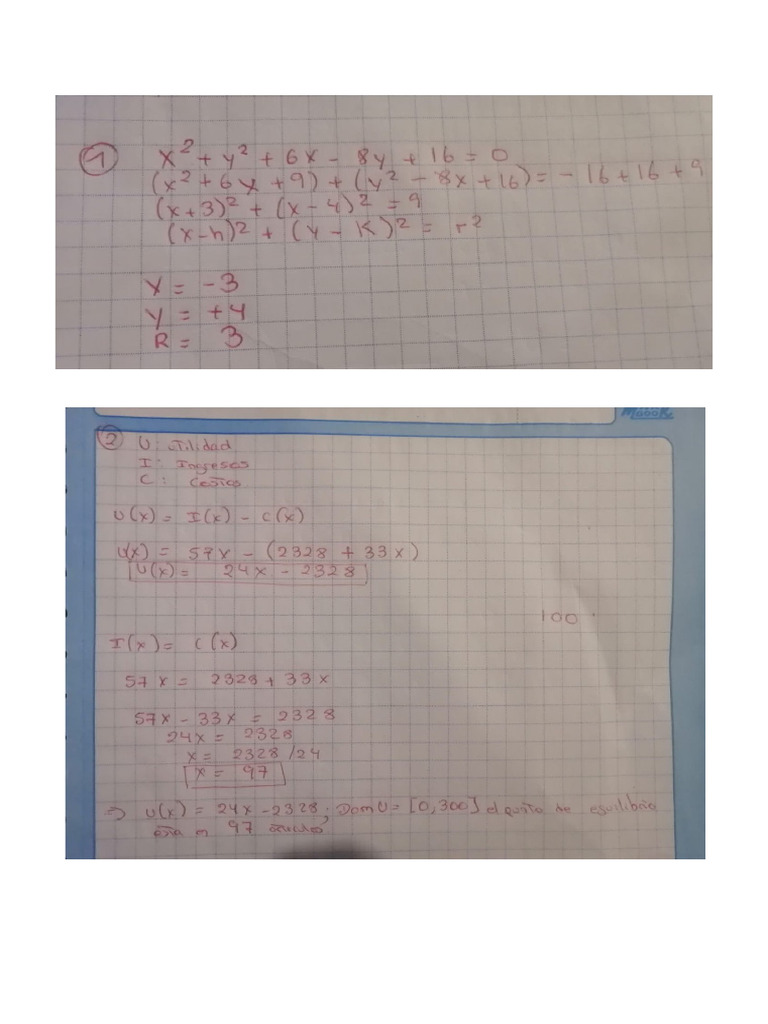 1
x² + y² + 6x - 8y + 16 = 0
(x² + 6x + 9) + (y² - 8x + 16) = - 16 + 16 + 9
(x + 3)² + (x - 4)² = 9
(x - h)² + (y - K)² = r²
x = -3
y = +4
R = 3
MOOOK
2 U: utilidad
I: Ingresos
C: Costos
U(x) = I(x) - C(x)
U(x) = 57x - (2328 + 33x)
U(x) = 24x - 2328
100
I(x) = C(x)
57x = 2328 + 33x
57x - 33x = 2328
24x = 2328
x = 2328/24
x = 97
⇒ U(x) = 24x - 2328; Dom U = [0, 300] el punto de equilibrio
esta en 97